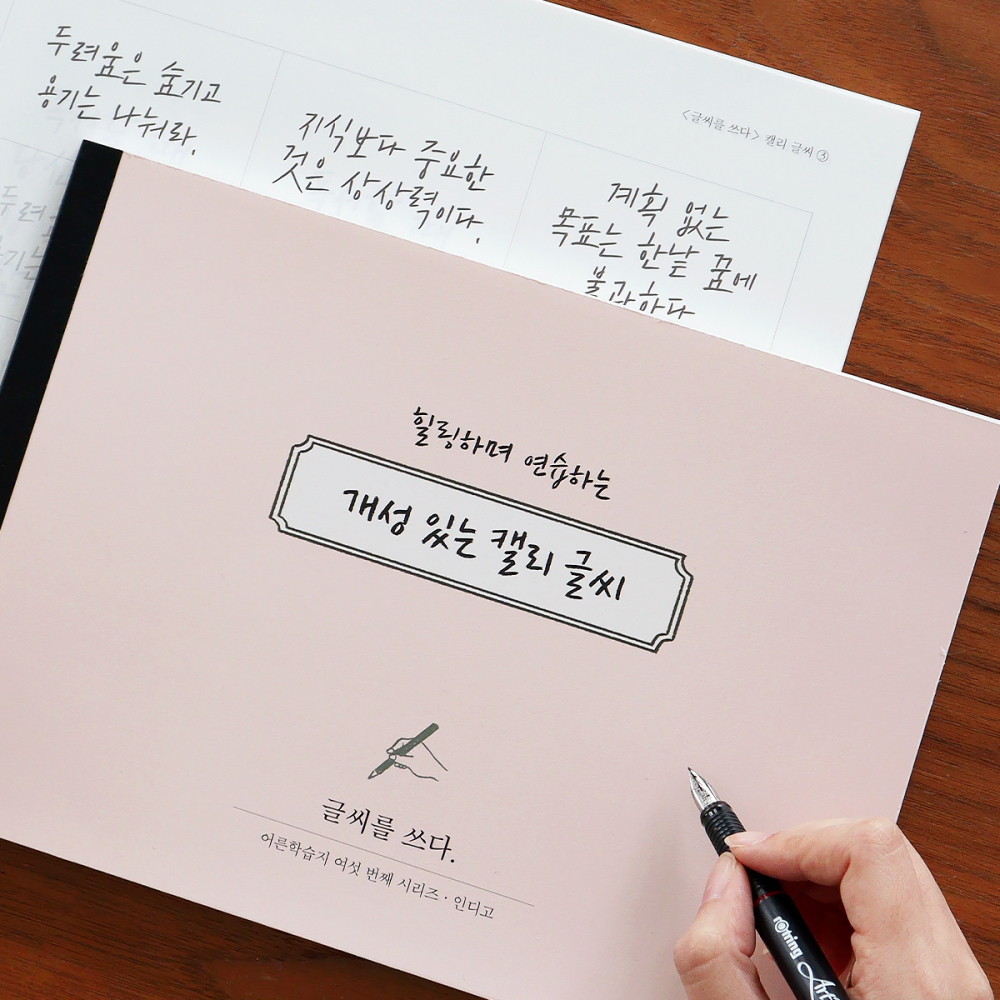 두려움은 숨기고
용기는 나눠라.
지식보다 중요한
것은 상상력이다.
<글씨를 쓰다> 캘리 글씨 ③
계획 없는
목표는 한낱 꿈에
불과하다
힐링하며 연습하는
개성 있는 캘리 글씨
글씨를 쓰다.
어른학습지 여섯 번째 시리즈 · 인디고
rOtring